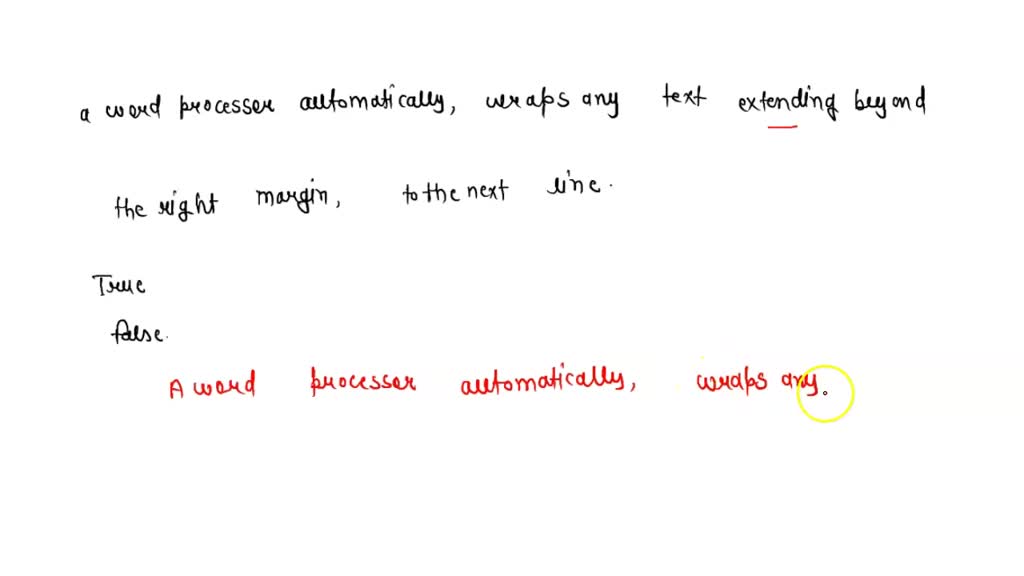 a word processor automatically, wraps any text extending beyond
the right margin, to the next line.
True
false.
A word processor automatically, wraps any